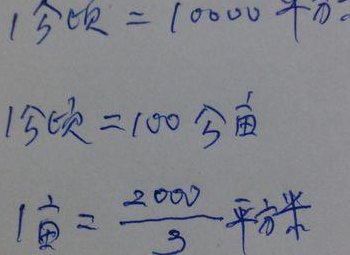 1公顷=10000平方
1公顷=100公亩
1亩=2000/3平方米